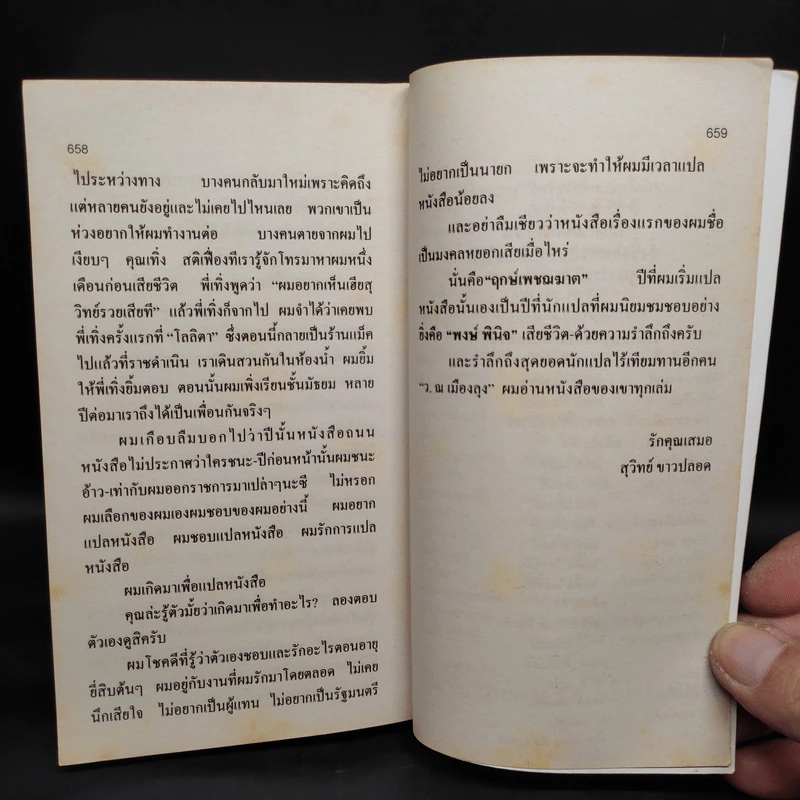 658
ไประหว่างทาง บางคนกลับมาใหม่เพราะคิดถึง
แต่หลายคนยังอยู่และไม่เคยไปไหนเลย พวกเขาเป็น
ห่วงอยากให้ผมทำงานต่อ บางคนตายจากผมไป
เงียบๆ คุณเทิ่ง สติเฟื่องที่เรารู้จักโทรมาหาผมหนึ่ง
เดือนก่อนเสียชีวิต พี่เทิ่งพูดว่า “ผมอยากเห็นเฮียสุ
วิทย์รวยเสียที” แล้วพี่เทิ่งก็จากไป ผมจำได้ว่าเคยพบ
พี่เทิ่งครั้งแรกที่ “โลลิตา” ซึ่งตอนนี้กลายเป็นร้านแม็ค
ไปแล้วที่ราชดำเนิน เราเดินสวนกันในห้องน้ำ ผมยิ้ม
ให้พี่เทิ่งยิ้มตอบ ตอนนั้นผมเพิ่งเรียนชั้นมัธยม หลาย
ปีต่อมาเราถึงได้เป็นเพื่อนกันจริงๆ
ผมเกือบลืมบอกไปว่าปีนั้นหนังสือถนน
หนังสือไม่ประกาศว่าใครชนะ-ปีก่อนหน้านั้นผมชนะ
อ้าว-เท่ากับผมออกราชการมาเปล่าๆนะซี ไม่หรอก
ผมเลือกของผมเองผมชอบของผมอย่างนี้ ผมอยาก
แปลหนังสือ ผมชอบแปลหนังสือ ผมรักการแปล
หนังสือ
ผมเกิดมาเพื่อแปลหนังสือ
คุณล่ะรู้ตัวมั้ยว่าเกิดมาเพื่อทำอะไร? ลองตอบ
ตัวเองดูสิครับ
ผมโชคดีที่รู้ว่าตัวเองชอบและรักอะไรตอนอายุ
ยี่สิบต้นๆ ผมอยู่กับงานที่ผมรักมาโดยตลอด ไม่เคย
นึกเสียใจ ไม่อยากเป็นผู้แทน ไม่อยากเป็นรัฐมนตรี
659
ไม่อยากเป็นนายก เพราะจะทำให้ผมมีเวลาแปล
หนังสือน้อยลง
และอย่าลืมเชียวว่าหนังสือเรื่องแรกของผมชื่อ
เป็นมงคลหยอกเสียเมื่อไหร่
นั่นคือ“ฤกษ์เพชฌฆาต” ปีที่ผมเริ่มแปล
หนังสือนั้นเองเป็นปีที่นักแปลที่ผมนิยมชมชอบอย่าง
ยิ่งคือ “พงษ์ พินิจ” เสียชีวิต-ด้วยความรำลึกถึงครับ
และรำลึกถึงสุดยอดนักแปลไร้เทียมทานอีกคน
“ว. ณ เมืองลุง” ผมอ่านหนังสือของเขาทุกเล่ม
รักคุณเสมอ
สุวิทย์ ขาวปลอด